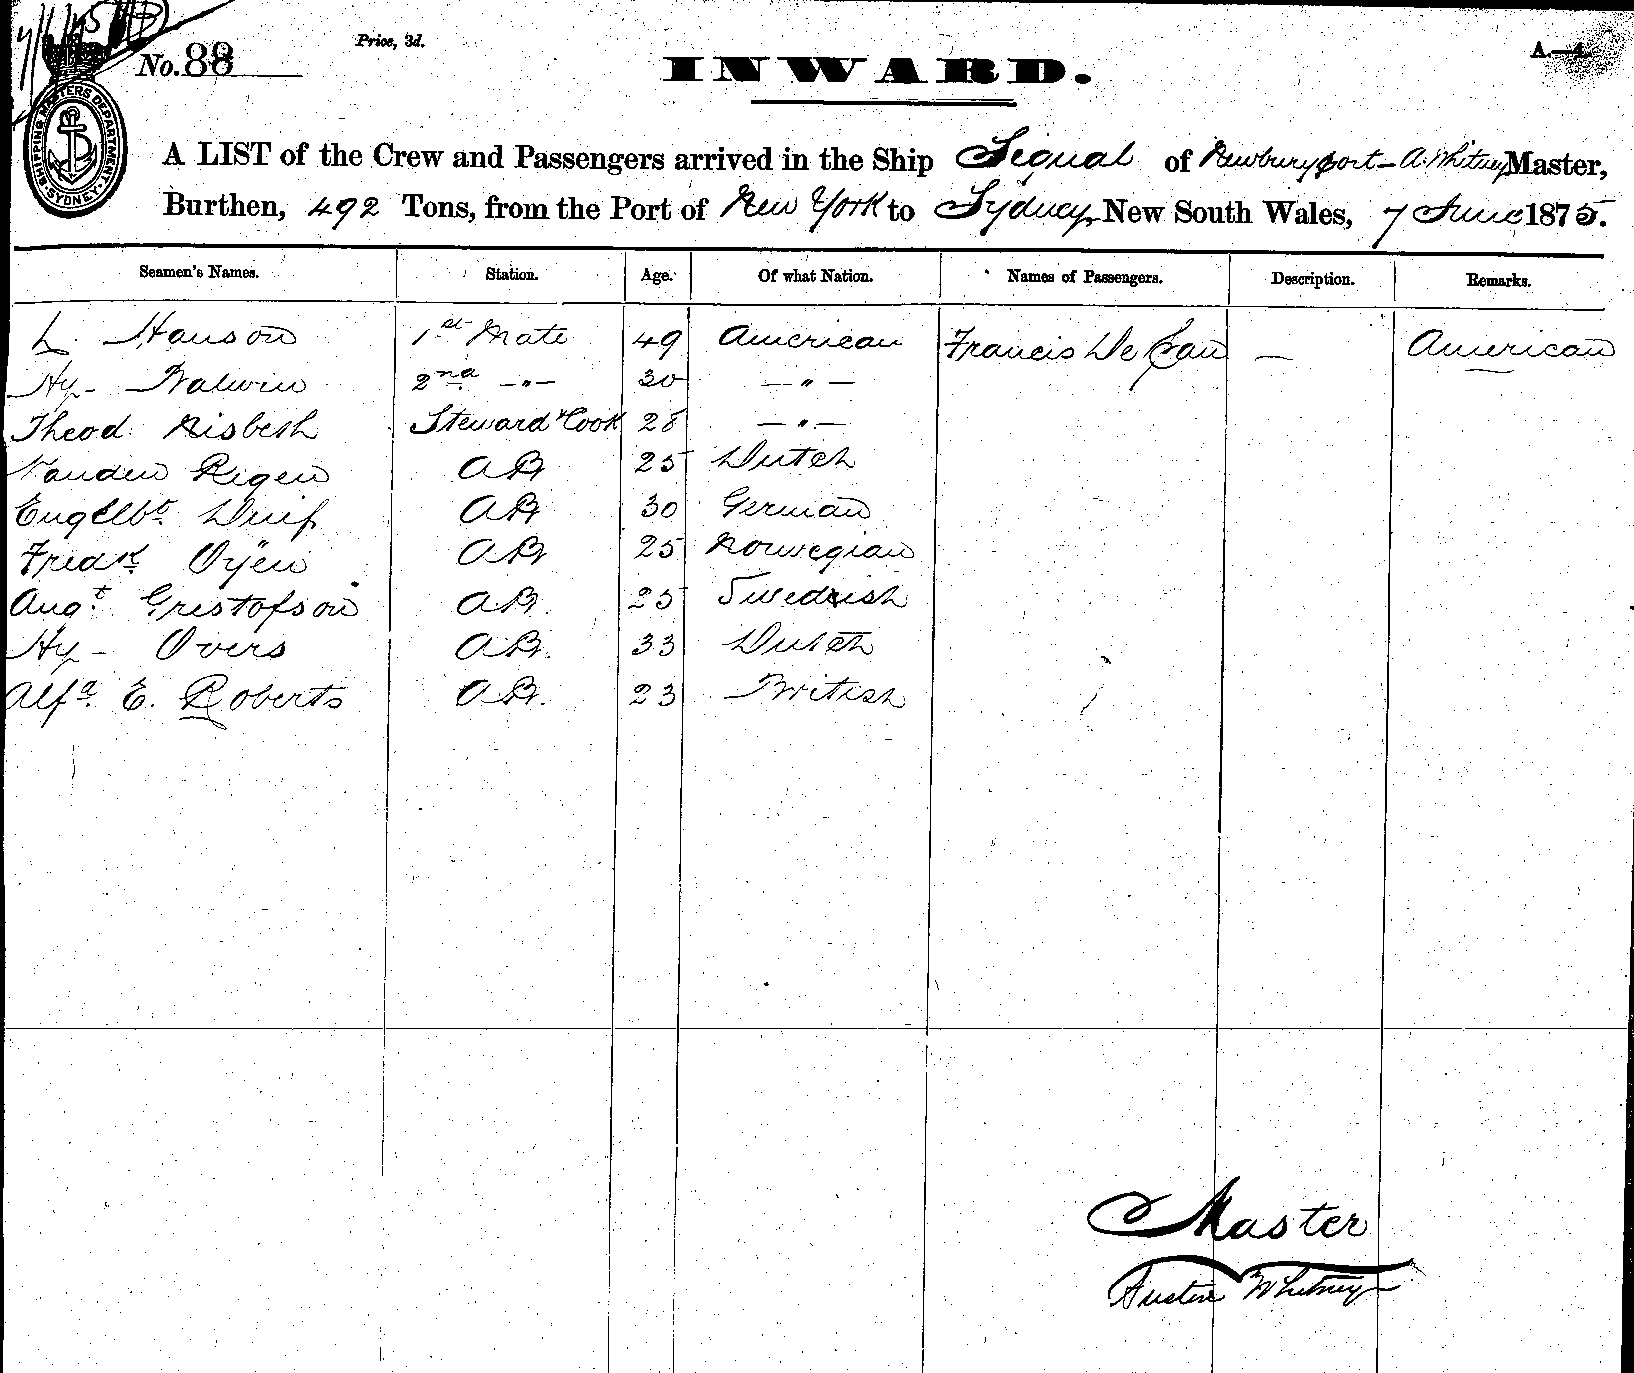 7/6/75
No. 88
Price, 3d.
INWARD.
A.—4.
SHIPPING MASTERS DEPARTMENT SYDNEY
A LIST of the Crew and Passengers arrived in the Ship Sequal of Newburyport - A. Whitney Master,
Burthen, 492 Tons, from the Port of New York to Sydney, New South Wales, 7 June 1875.
Seamen's Names. Station. Age. Of what Nation. Names of Passengers. Description. Remarks.
L. Hanson 1st Mate 49 American Francis De — American
Hy - Balwin 2nd —"— 30 —"—
Theod. Nisbesh Steward & Cook 28 —"—
Vanden Rigen AB 25 Dutch
Engelbt. AB 30 German
Fredk. Oÿen AB 25 Norwegian
Augt. Gristofson AB. 25 Swedish
Hy - Overs AB. 33 Dutch
Alfd. E. Roberts AB. 23 British
Master
Austin Whitney